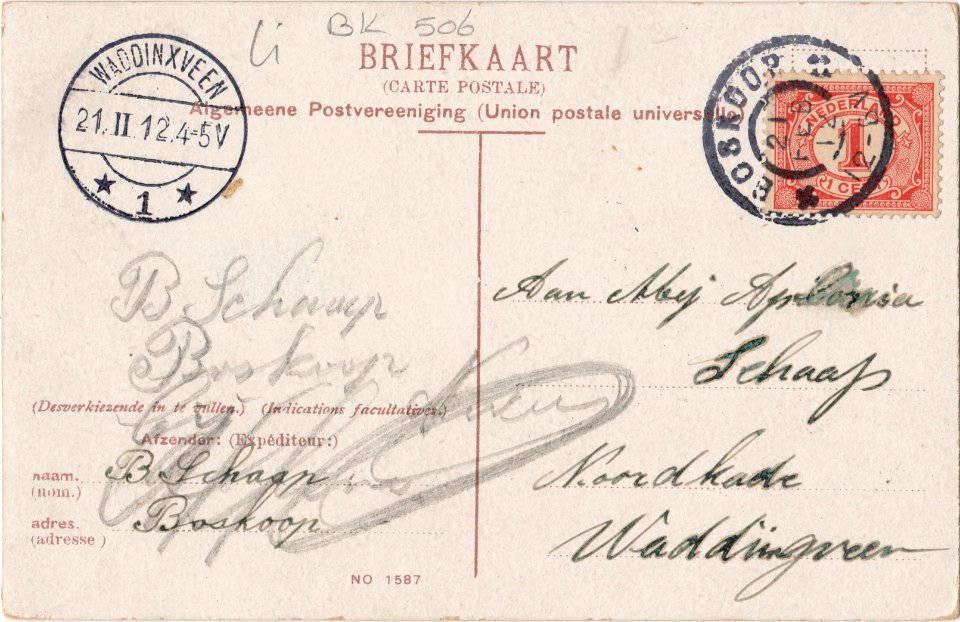 Li BK 506
BRIEFKAART
(CARTE POSTALE)
Algemeene Postvereeniging (Union postale universelle)
WADDINXVEEN
21.II.12.4-5V
1
BOSKOOP
21 FEB 12
12-
NEDERLAND
1
1 CENT
B Schaap
Boskoop
(Desverkiezende in te vullen.) (Indications facultatives.)
Afzender: (Expéditeur:)
naam. B. Schaap
(nom.)
adres. Boskoop
(adresse)
NO 1587
Aan Mej Aplonia
Schaap
Noordkade
Waddingveen